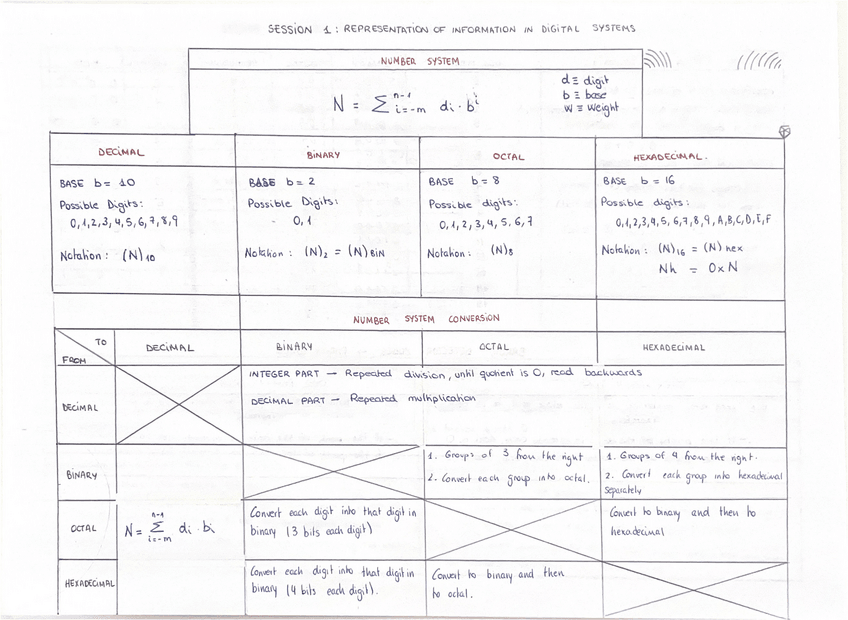 SESSION 1: REPRESENTATION OF INFORMATION IN DIGITAL SYSTEMS
NUMBER SYSTEM
N = ∑ⁿ⁻¹ᵢ₌₋ₘ di · bⁱ
d ≡ digit
b ≡ base
w ≡ weight
DECIMAL
BASE b = 10
Possible Digits:
0,1,2,3,4,5,6,7,8,9
Notation: (N)10
BINARY
BASE b = 2
Possible Digits:
0,1
Notation: (N)2 = (N)BIN
OCTAL
BASE b = 8
Possible digits:
0,1,2,3,4,5,6,7
Notation: (N)8
HEXADECIMAL.
BASE b = 16
Possible digits:
0,1,2,3,4,5,6,7,8,9,A,B,C,D,E,F
Notation: (N)16 = (N)hex
Nh = 0xN
NUMBER SYSTEM CONVERSION
TO
FROM
DECIMAL
BINARY
OCTAL
HEXADECIMAL
DECIMAL
INTEGER PART — Repeated division, until quotient is 0, read backwards
DECIMAL PART — Repeated multiplication
BINARY
1. Groups of 3 from the right
2. Convert each group into octal.
1. Groups of 4 from the right.
2. Convert each group into hexadecimal
separately
OCTAL
N = ∑ⁿ⁻¹ᵢ₌₋ₘ di · bi
Convert each digit into that digit in
binary (3 bits each digit)
Convert to binary and then to
hexadecimal
HEXADECIMAL
Convert each digit into that digit in
binary (4 bits each digit).
Convert to binary and then
to octal.